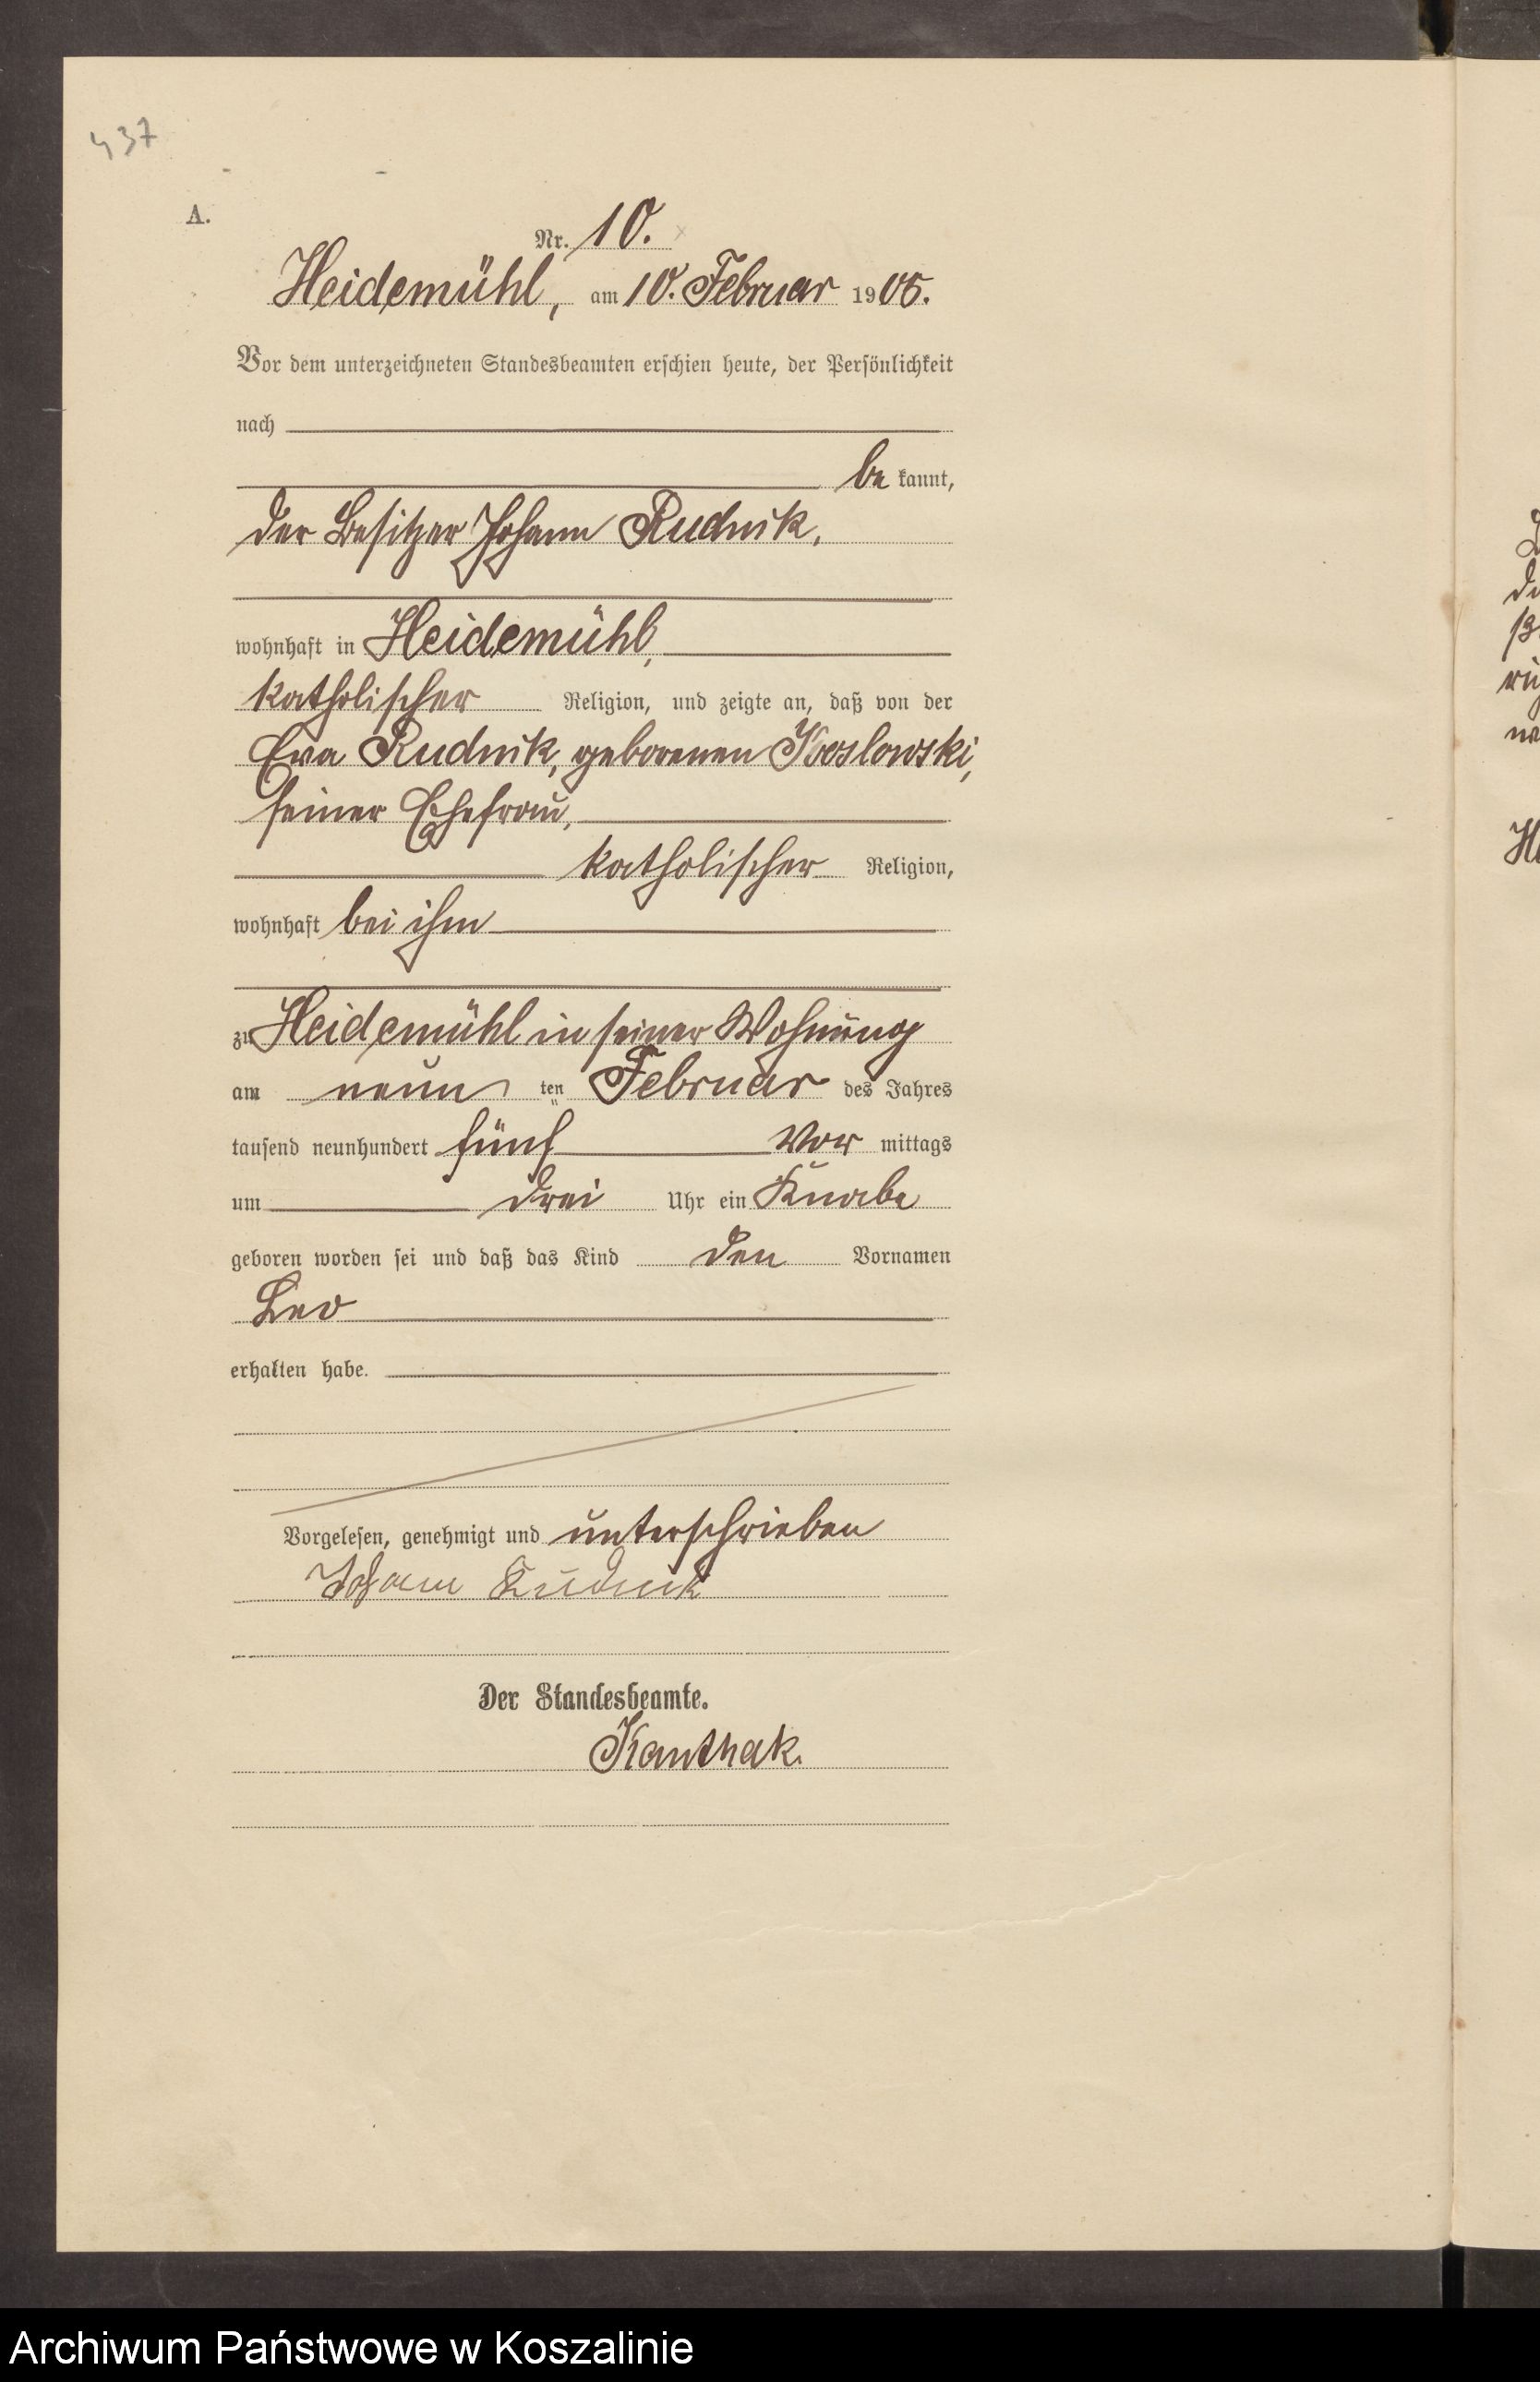 437
A.
Nr. 10.
Heidemühl, am 10. Februar 1905.
Vor dem unterzeichneten Standesbeamten erschien heute, der Persönlichkeit
nach
be kannt,
der Besitzer Johann Rudnik,
wohnhaft in Heidemühl,
katholischer Religion, und zeigte an, daß von der
Eva Rudnik, geborenen Koslowski,
seiner Ehefrau,
katholischer Religion,
wohnhaft bei ihm
zu Heidemühl in seiner Wohnung
am neun ten Februar des Jahres
tausend neunhundert fünf Vor mittags
um drei Uhr ein Knabe
geboren worden sei und daß das Kind den Vornamen
Leo
erhalten habe.
Vorgelesen, genehmigt und unterschrieben
Johann Rudnik
Der Standesbeamte.
Kanthak.
Archiwum Państwowe w Koszalinie